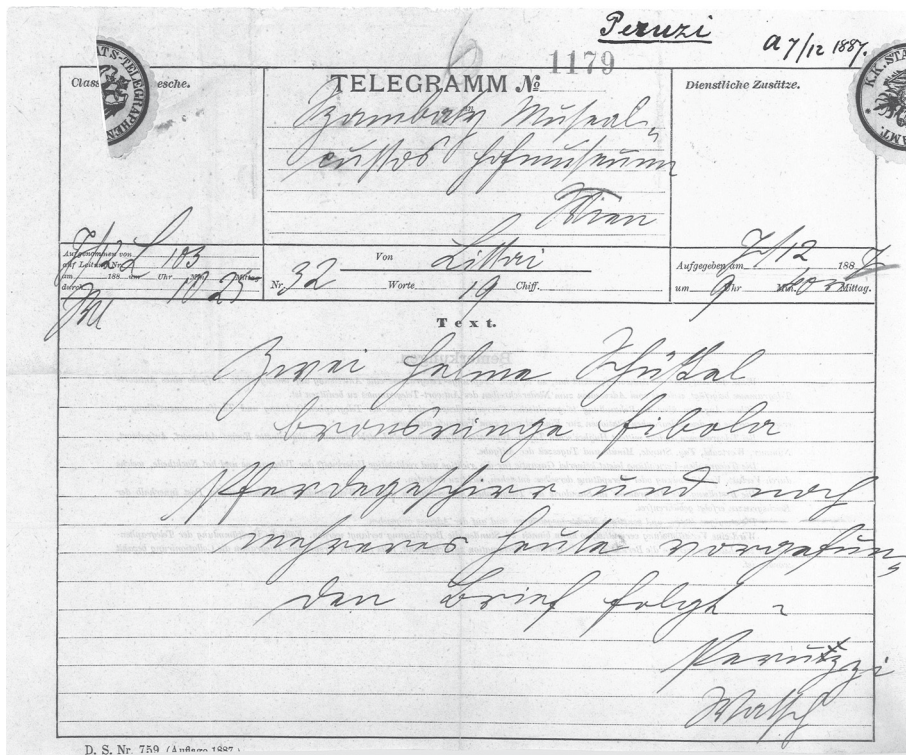 Peruzi
a 7/12 1887.
1179
TELEGRAMM №
Dienstliche Zusätze.
Szombaty Museal=
custos Hofmuseum
Wien
7/12 L 103
Aufgenommen von
auf Leitung Nr.
am 188 um Uhr Min. Mittag
durch 10 25
Von Littai
Nr. 32 Worte 19 Chiff.
Aufgegeben am 7/12 1887
um 9 Uhr Min. 40 Mittag.
Text.
Zwei Helme Schüssel
bronsringe fibola
Pferdegeschirr und noch
mehreres heute vorgefun=
den Brief folgt =
Peruzzi
Watsch
D. S. Nr. 759. (Auflage 1887.)